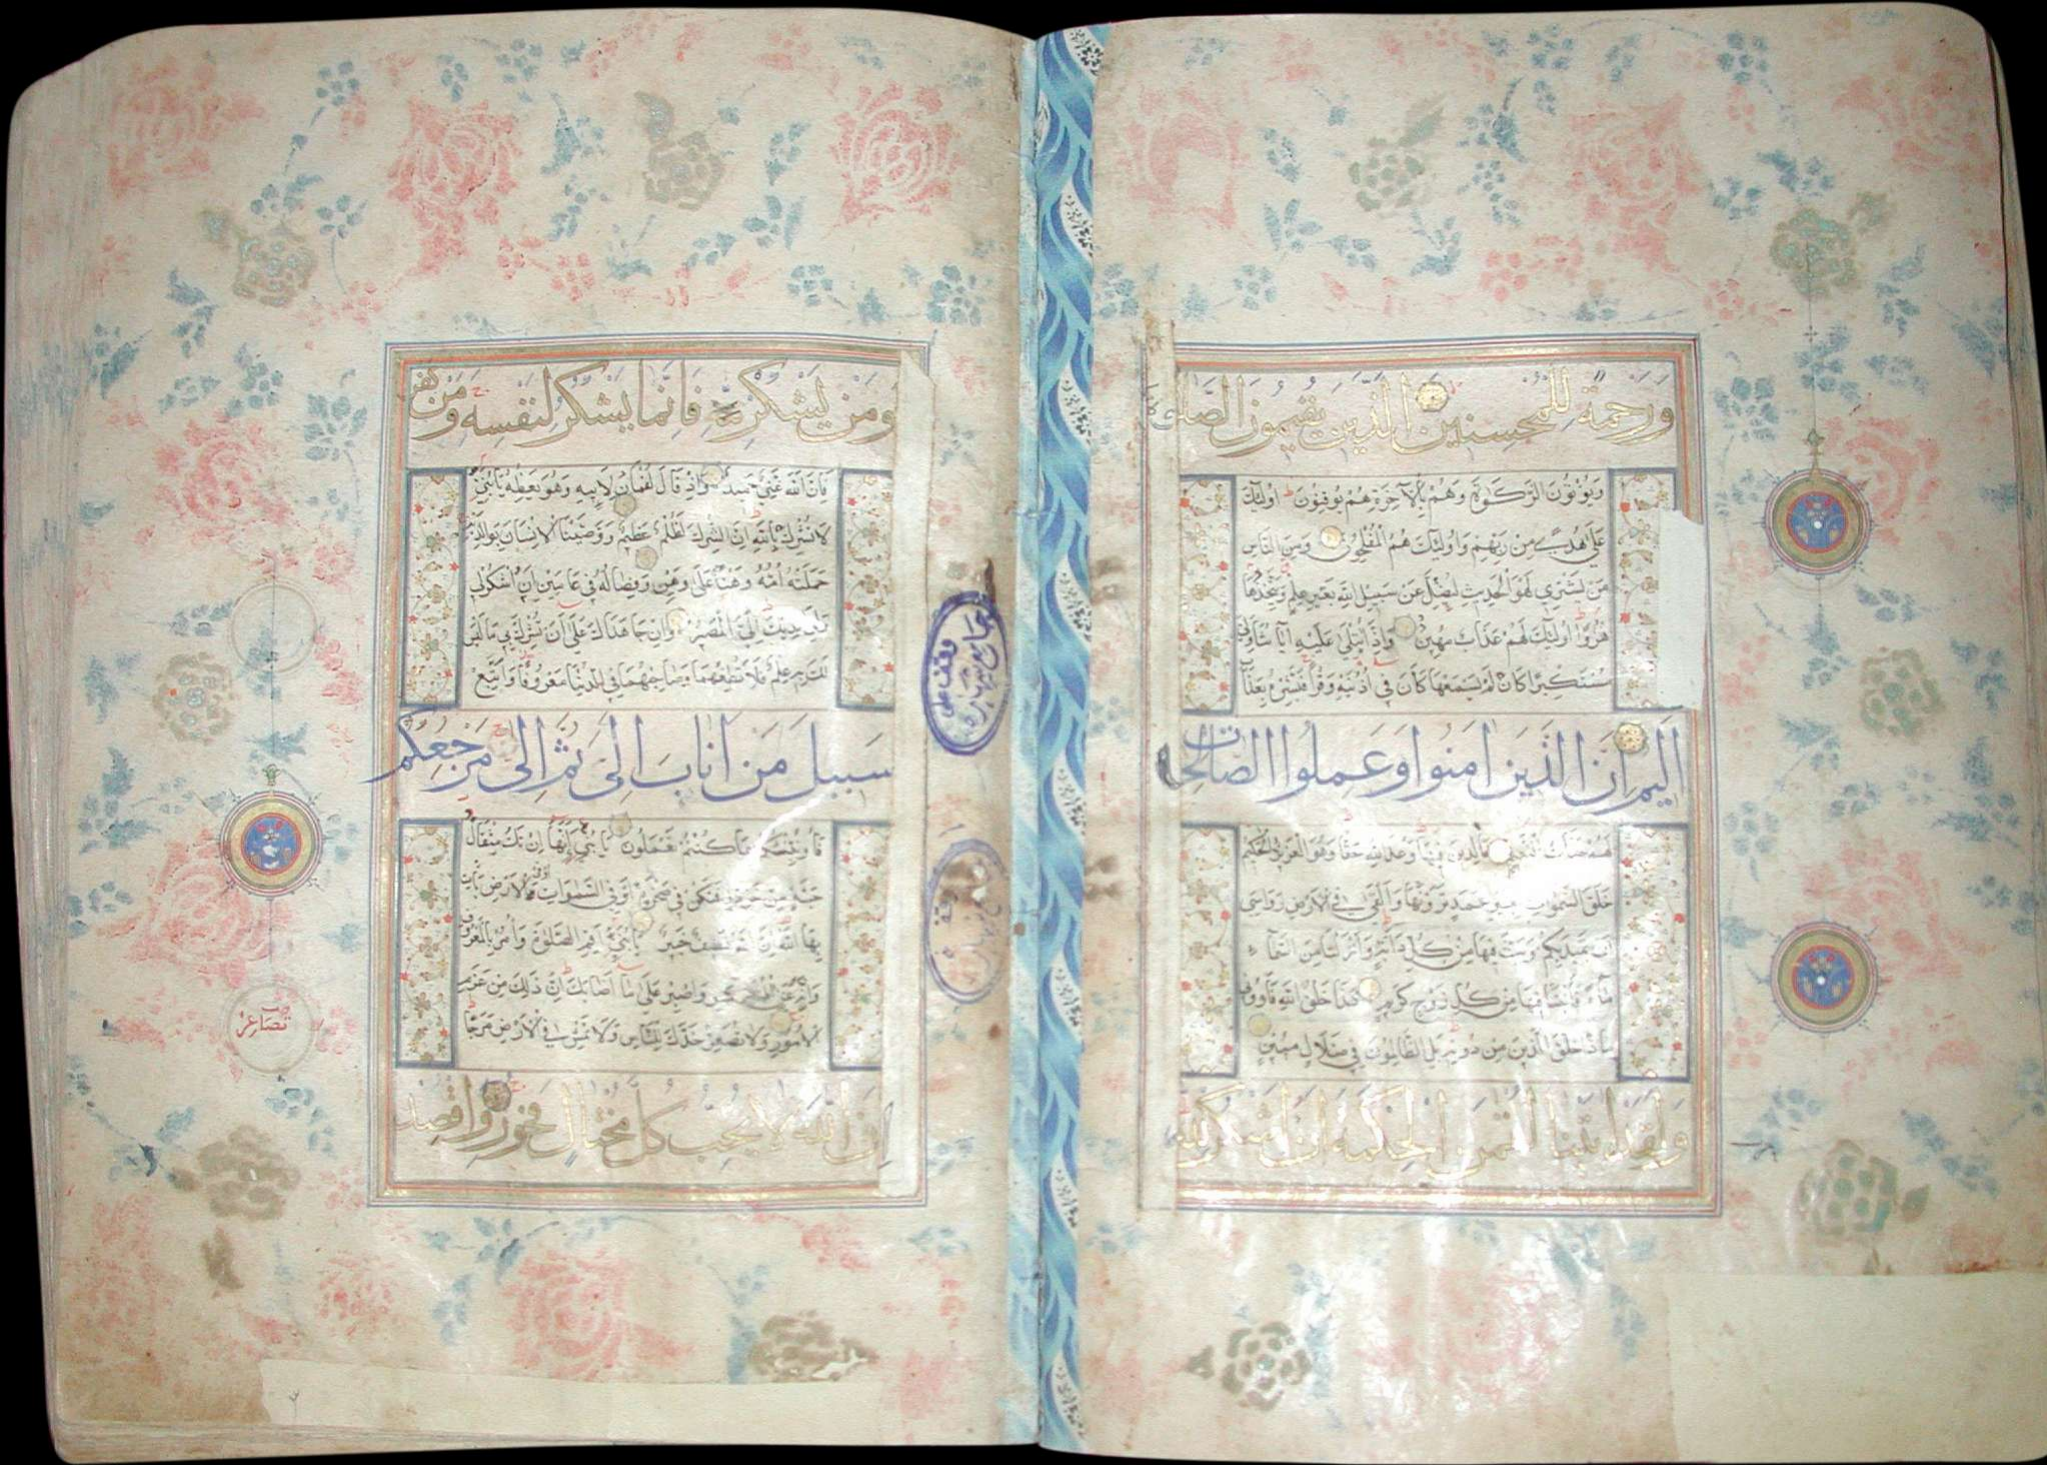 ورحمة للمحسنين الذين يقيمون الصلوة
ويؤتون الزكوة وهم بالآخرة هم يوقنون اولئك
على هدى من ربهم واولئك هم المفلحون ومن الناس
من يشتري لهو الحديث ليضل عن سبيل الله بغير علم ويتخذها
هزوا اولئك لهم عذاب مهين واذا تتلى عليه آياتنا ولى
مستكبرا كان لم يسمعها كان في اذنيه وقرا فبشره بعذاب
اليم ان الذين امنوا وعملوا الصالحات
لهم جنات النعيم خالدين فيها وعد الله حقا وهو العزيز الحكيم
خلق السموات بغير عمد ترونها والقى في الارض رواسي
ان تميد بكم وبث فيها من كل دابة وانزلنا من السماء
ماء فانبتنا فيها من كل زوج كريم هذا خلق الله فاروني
ماذا خلق الذين من دونه بل الظالمون في ضلال مبين
ولقد اتينا لقمن الحكمة ان اشكر لله
ومن يشكر فانما يشكر لنفسه ومن كفر
فان الله غني حميد واذ قال لقمان لابنه وهو يعظه يا بني
لا تشرك بالله ان الشرك لظلم عظيم ووصينا الانسان بوالديه
حملته امه وهنا على وهن وفصاله في عامين ان اشكر لي
ولوالديك الي المصير وان جاهداك على ان تشرك بي ما ليس
لك به علم فلا تطعهما وصاحبهما في الدنيا معروفا واتبع
سبيل من اناب الي ثم الي مرجعكم
فانبئكم بما كنتم تعملون يا بني انها ان تك مثقال
حبة من خردل فتكن في صخرة او في السموات او في الارض يات
بها الله ان الله لطيف خبير يا بني اقم الصلوة وامر بالمعروف
وانه عن المنكر واصبر على ما اصابك ان ذلك من عزم
الامور ولا تصعر خدك للناس ولا تمش في الارض مرحا
ان الله لا يحب كل مختال فخور واقصد
تصاعر
وقف على